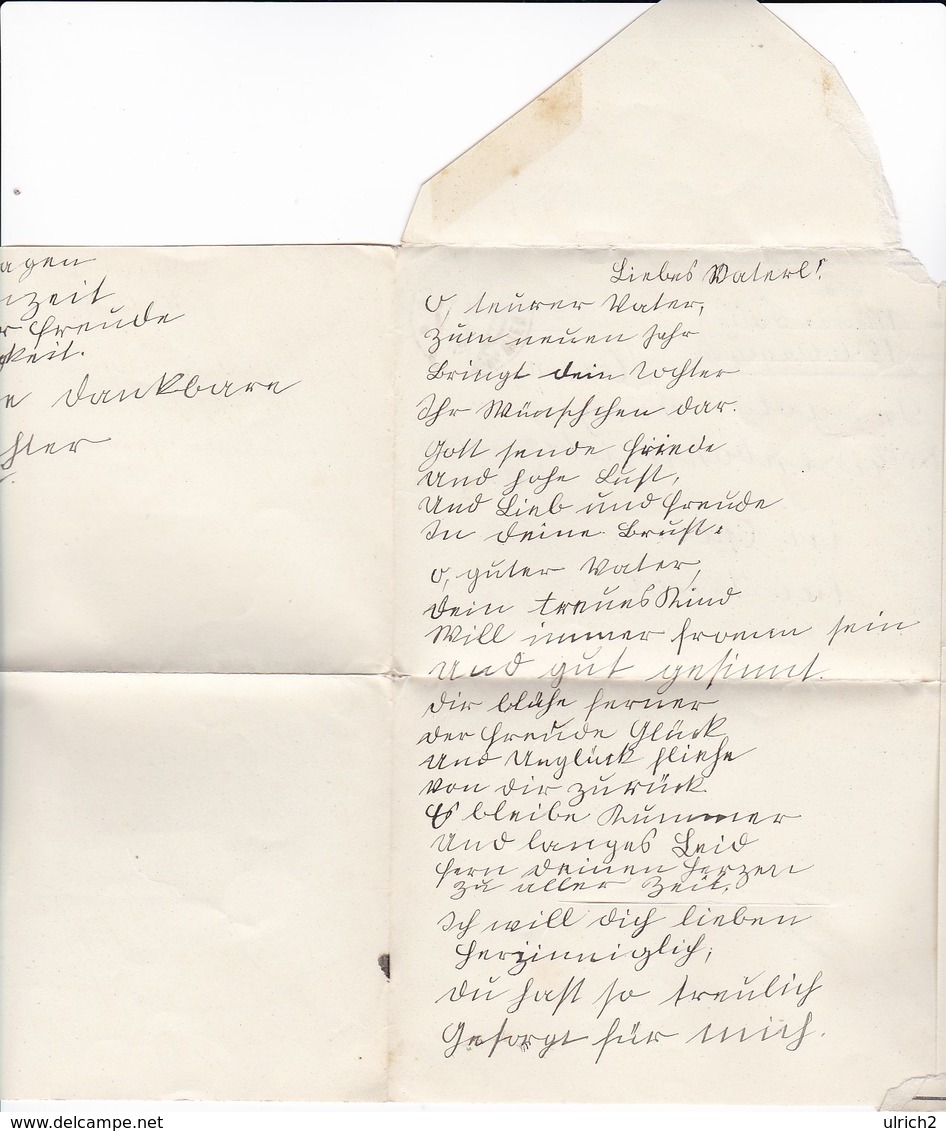 agen
nzeit
r Freude
gkeit.
e dankbare
hter
Liebes Vaterl!
O, teurer Vater,
Zum neuen Jahr
Bringt dein Tochter
Ihr Wünschchen dar.
Gott sende Friede
Und hohe Lust,
Und Lieb und Freude
In deine Brust.
O, guter Vater,
Dein treues Kind
Will immer fromm sein
Und gut gesinnt.
Dir blühe ferner
Der Freude Glück
Und Unglück fliehe
Von dir zurück.
Es bleibe Kummer
Und langes Leid
Fern deinen Herzen
Zu aller Zeit.
Ich will dich lieben
Herzinniglich;
Du hast so treulich
Gesorgt für mich.
ulrich2